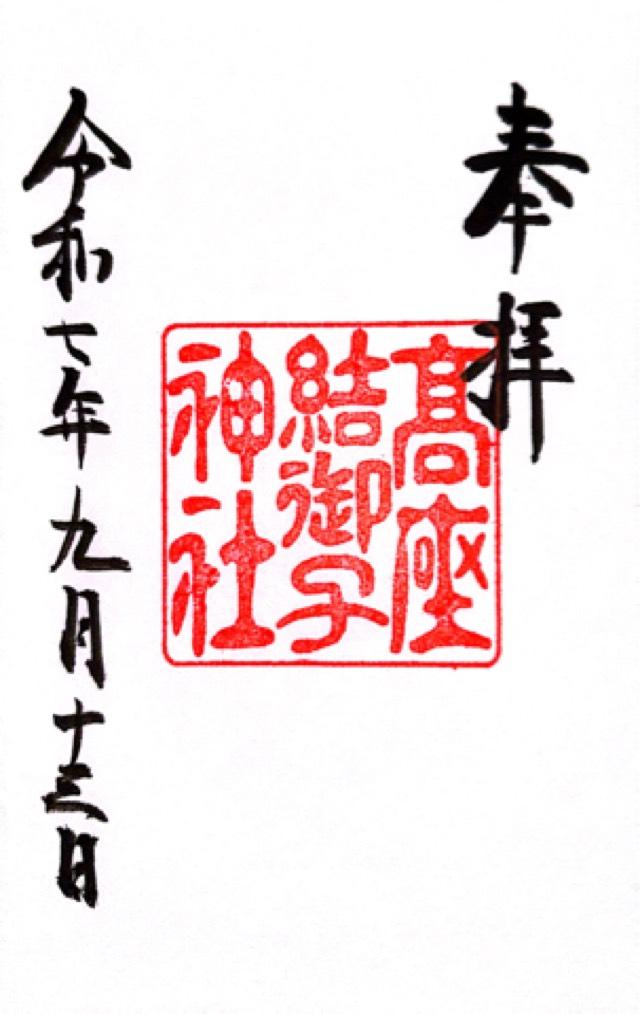 奉拝
髙座
結御子
神社
令和七年九月十三日